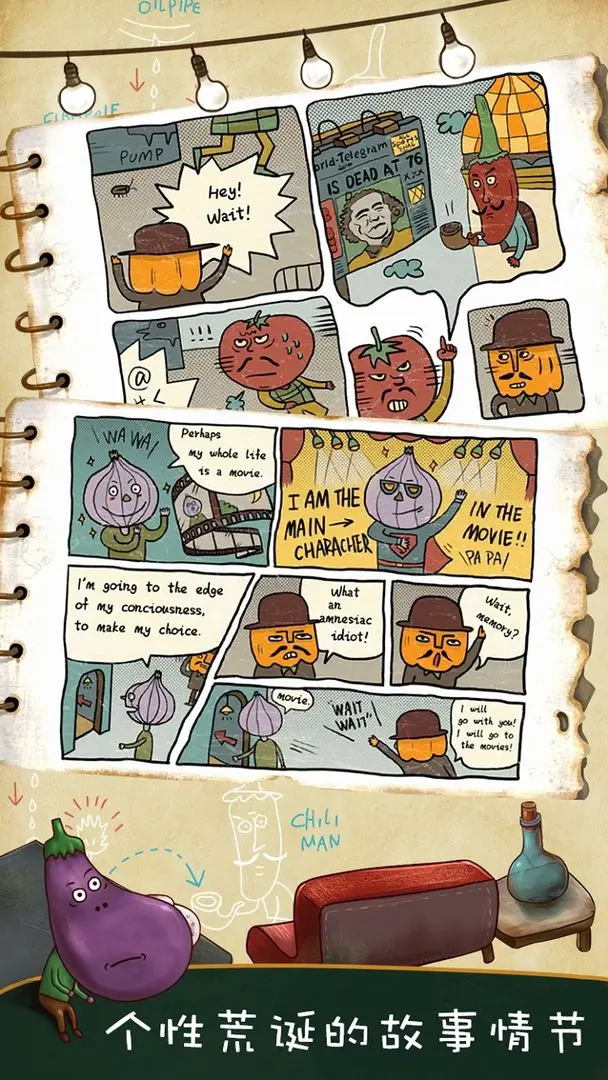 OILPIPE
PUMP
Hey!
Wait!
orld-Telegram
IS DEAD AT 76
!!!
@
\WA WA/
Perhaps
my whole life
is a movie.
I AM THE
MAIN →
CHARACHER
IN THE
MOVIE!!
\PA PA/
I'm going to the edge
of my conciousness,
to make my choice.
What
an
amnesiac
idiot!
Wait,
memory?
movie.
"WAIT
WAIT"
I will
go with you!
I will go to
the movies!
CHILI
MAN
个性荒诞的故事情节